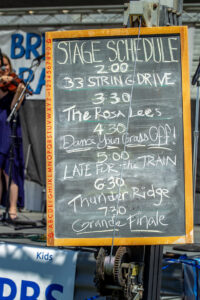 BR
STAGE SCHEDULE
2:00
33 STRING DRIVE
3:30
The Rosa Lees
4:30
Dance Your Grass OFF!
5:00
LATE FOR the TRAIN
6:30
Thunder Ridge
7:30
Grande Finale
Kids